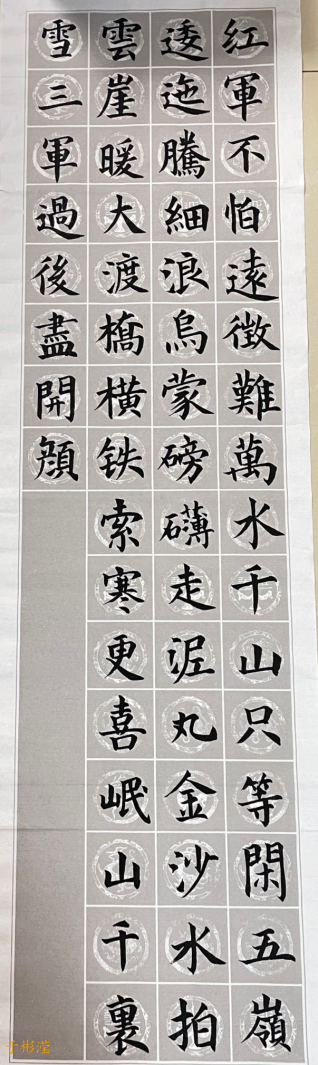 红軍不怕遠徵難萬水千山只等閑五嶺
逶迤騰細浪烏蒙磅礴走泥丸金沙水拍
雲崖暖大渡橋橫铁索寒更喜岷山千裏
雪三軍過後盡開顔